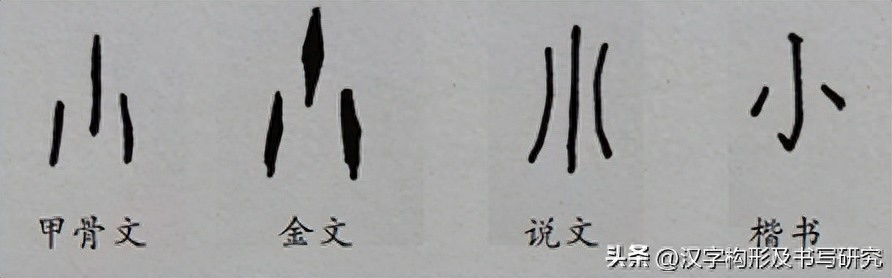 小 小 小 小
甲骨文 金文 说文 楷书
头条 @汉字构形及书写研究